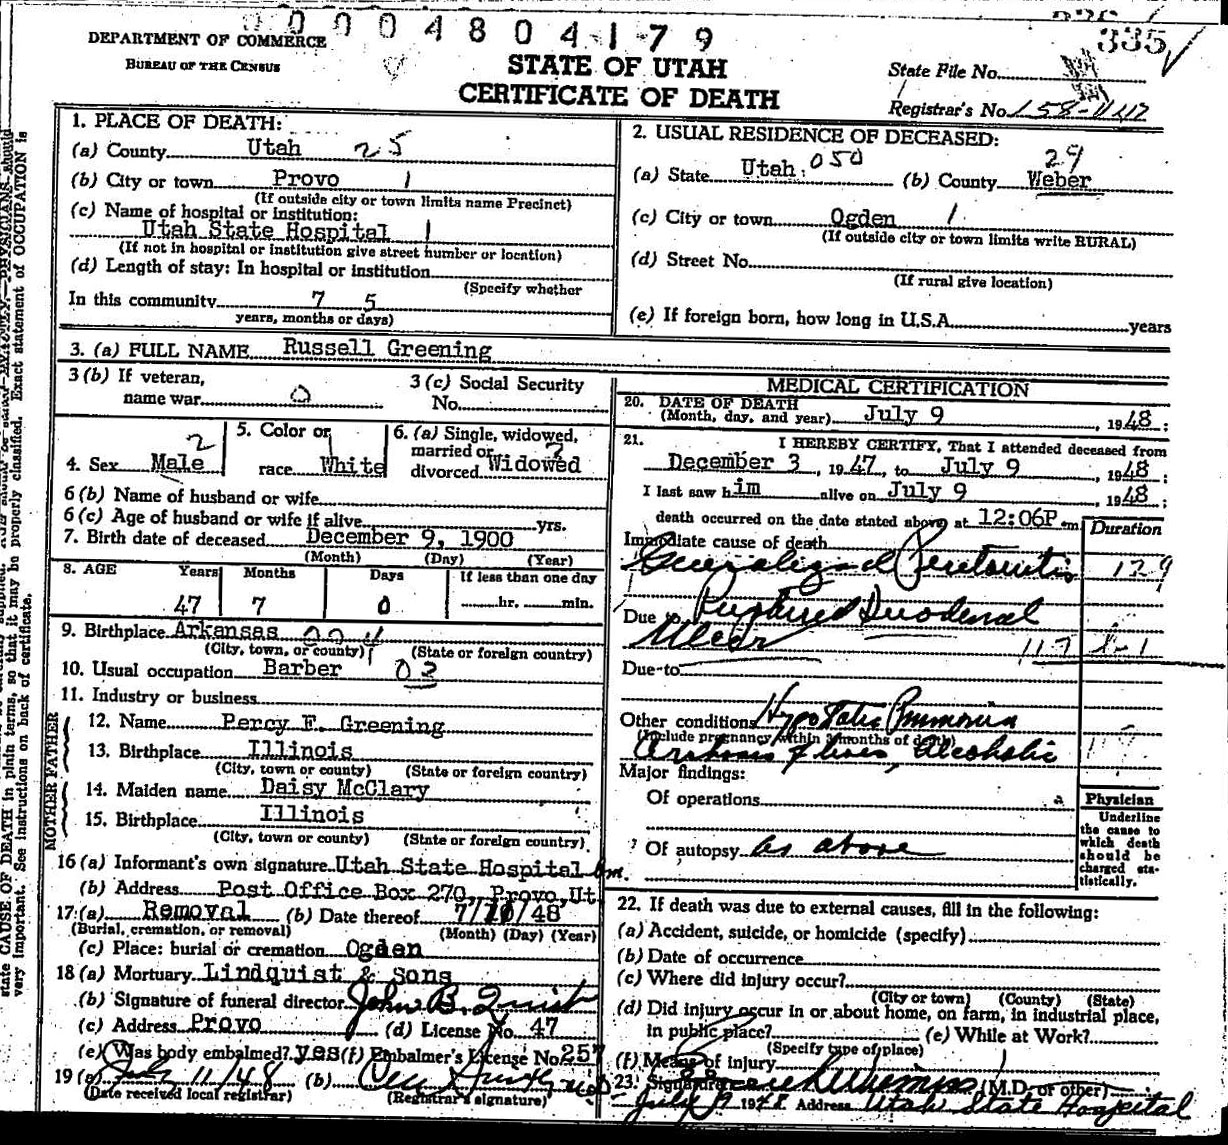 0004804179
335
DEPARTMENT OF COMMERCE
BUREAU OF THE CENSUS
STATE OF UTAH
CERTIFICATE OF DEATH
State File No.
Registrar's No.
1. PLACE OF DEATH:
(a) County Utah 25
(b) City or town Provo 1
(If outside city or town limits name Precinct)
(c) Name of hospital or institution:
Utah State Hospital 1
(If not in hospital or institution give street number or location)
(d) Length of stay: In hospital or institution
(Specify whether
In this community 7 5
years, months or days)
2. USUAL RESIDENCE OF DECEASED:
29
(a) State Utah 050 (b) County Weber
(c) City or town Ogden 1
(If outside city or town limits write RURAL)
(d) Street No.
(If rural give location)
(e) If foreign born, how long in U.S.A. years
3. (a) FULL NAME Russell Greening
3 (b) If veteran,
name war 0
3 (c) Social Security
No.
4. Sex Male 2
5. Color or
race White
6. (a) Single, widowed,
married or
divorced Widowed
6 (b) Name of husband or wife
6 (c) Age of husband or wife if alive yrs.
7. Birth date of deceased December 9, 1900
(Month) (Day) (Year)
8. AGE Years Months Days If less than one day
47 7 0 hr. min.
9. Birthplace Arkansas
(City, town, or county) (State or foreign country)
10. Usual occupation Barber 03
11. Industry or business
FATHER
12. Name Percy F. Greening
13. Birthplace Illinois
(City, town or county) (State or foreign country)
MOTHER
14. Maiden name Daisy McClary
15. Birthplace Illinois
(City, town or county) (State or foreign country)
16 (a) Informant's own signature Utah State Hospital bm.
(b) Address Post Office Box 270, Provo, Ut
17 (a) Removal (b) Date thereof 7/10/48
(Burial, cremation, or removal) (Month) (Day) (Year)
(c) Place: burial or cremation Ogden
18 (a) Mortuary Lindquist & Sons
(b) Signature of funeral director John B. Quist
(c) Address Provo (d) License No. 47
(e) Was body embalmed? yes (f) Embalmer's License No. 257
19 (a) July 11/48 (b)
(Date received local registrar) (Registrar's signature)
MEDICAL CERTIFICATION
20. DATE OF DEATH
(Month, day, and year) July 9, 1948;
21. I HEREBY CERTIFY, That I attended deceased from
December 3, 1947, to July 9 1948;
I last saw him alive on July 9, 1948;
death occurred on the date stated above at 12:06P m.
Duration
Immediate cause of death
Generalized Peritonitis 129
Due to Ruptured Duodenal
Ulcer
Due to
Other conditions Hypostatic Pneumonia
(Include pregnancy within 3 months of death)
Cirrhosis of liver, Alcoholic
Major findings:
Of operations
Of autopsy as above
Physician
Underline
the cause to
which death
should be
charged sta-
tistically.
22. If death was due to external causes, fill in the following:
(a) Accident, suicide, or homicide (specify)
(b) Date of occurrence
(c) Where did injury occur?
(City or town) (County) (State)
(d) Did injury occur in or about home, on farm, in industrial place,
in public place? (e) While at Work?
(Specify type of place)
(f) Means of injury
23. Signature (M.D. or other)
July 9 1948 Address Utah State Hospital
state CAUSE OF DEATH in plain terms, so that it may be properly classified. Exact statement of OCCUPATION is
very important. See instructions on back of certificate.